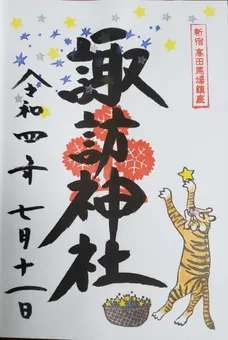 新宿高田馬場鎮座
諏訪神社
令和四年 七月十一日